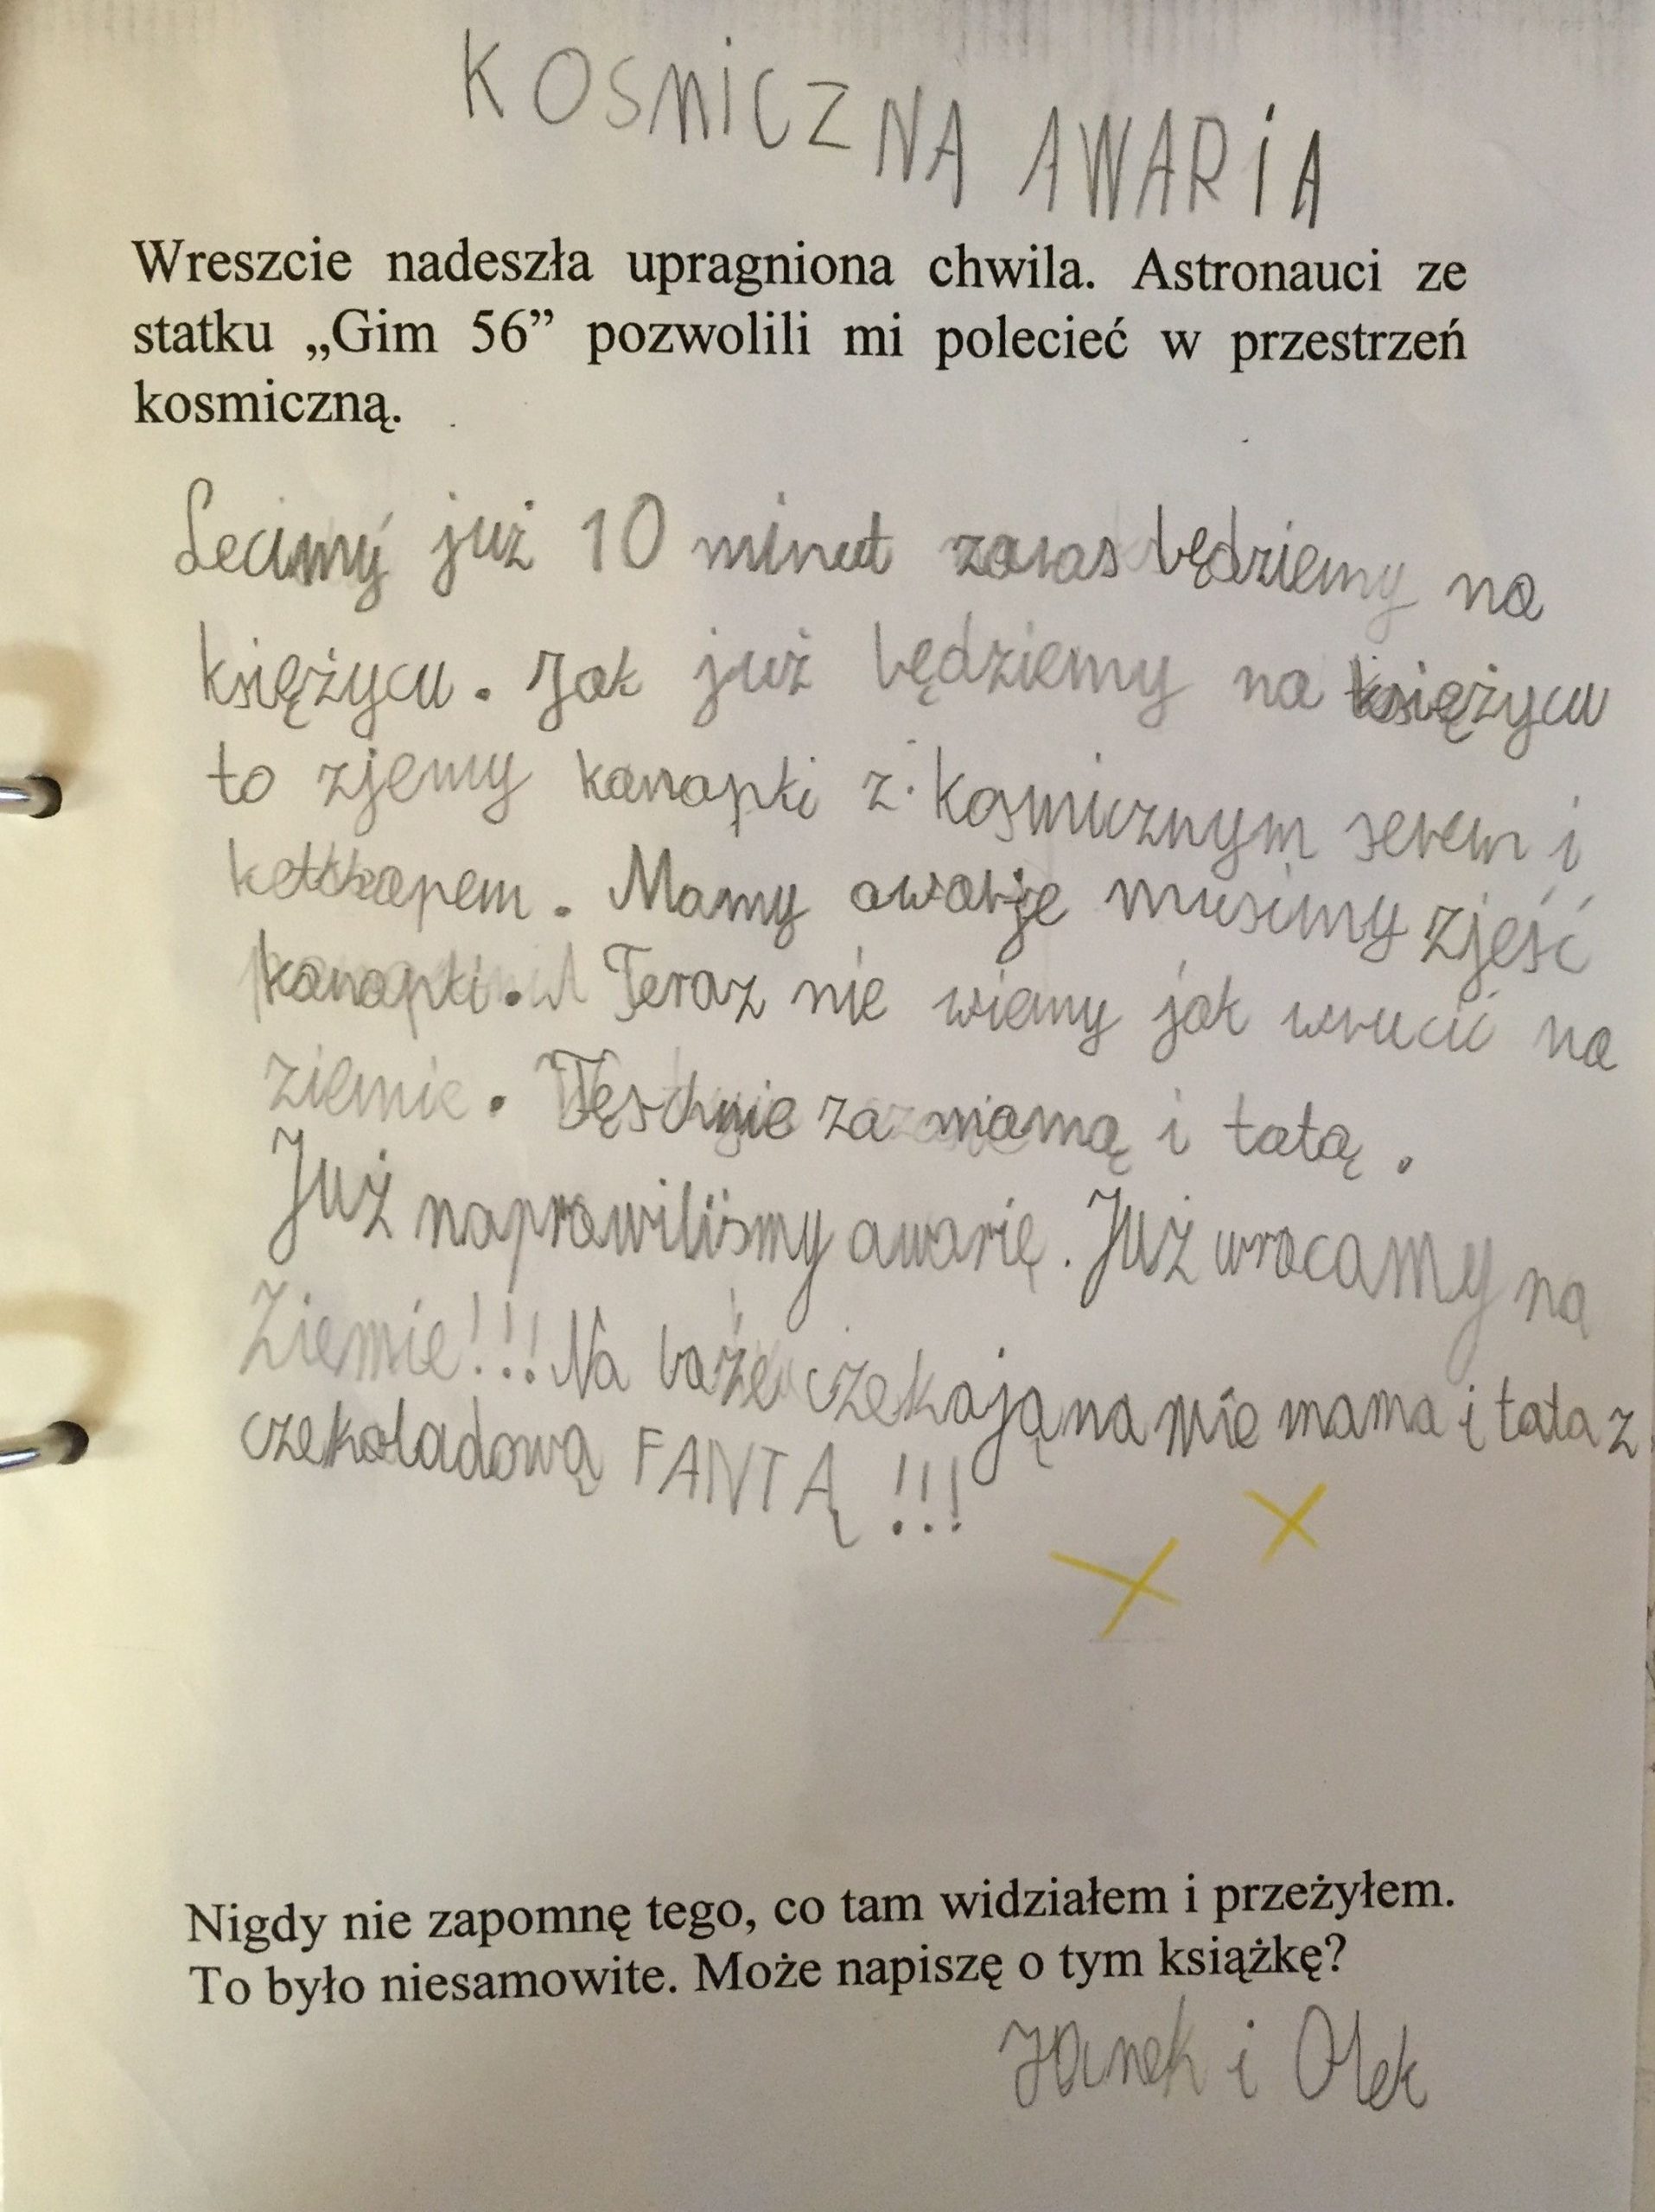 KOSMICZNA AWARIA
Wreszcie nadeszła upragniona chwila. Astronauci ze
statku „Gim 56” pozwolili mi polecieć w przestrzeń
kosmiczną.
Lecimy już 10 minut zaras będziemy na
księżycu. Jak już będziemy na księżycu
to zjemy kanapki z kosmicznym serem i
ketchapem. Mamy awarje musimy zjeść
kanapki. Teraz nie wiemy jak wrucić na
ziemie. Tęschnie za mamą i tatą.
Już naprawiliśmy awarię. Już wracamy na
Ziemie!!! Na baze czekają na mie mama i tata z
czekoladową FANTĄ!!!
Nigdy nie zapomnę tego, co tam widziałem i przeżyłem.
To było niesamowite. Może napiszę o tym książkę?
Janek i Olek